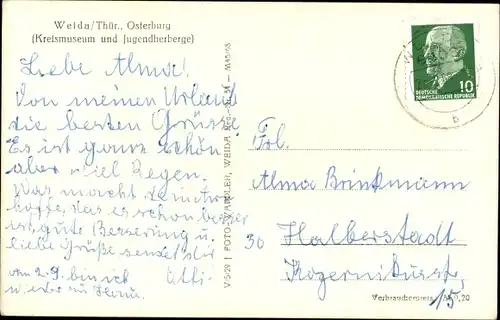 Weida/Thür., Osterburg
(Kreismuseum und Jugendherberge)
Liebe Alma!
Von meinen Urlaub
die besten Grüsse
Es ist ganz schön
aber viel Regen.
Was macht
hoffe, das es schon besser
ist, gute Besserung u.
liebe Grüße sendet dir
vom 2.9. bin ich
wieder zu Hause
V-5-29 | FOTO-WANDLER, WEIDA
DEUTSCHE
DEMOKRATISCHE REPUBLIK
10
b
Frl.
Alma Brinkmann
30 Halberstadt
15
Verbraucherpreis M 0,20